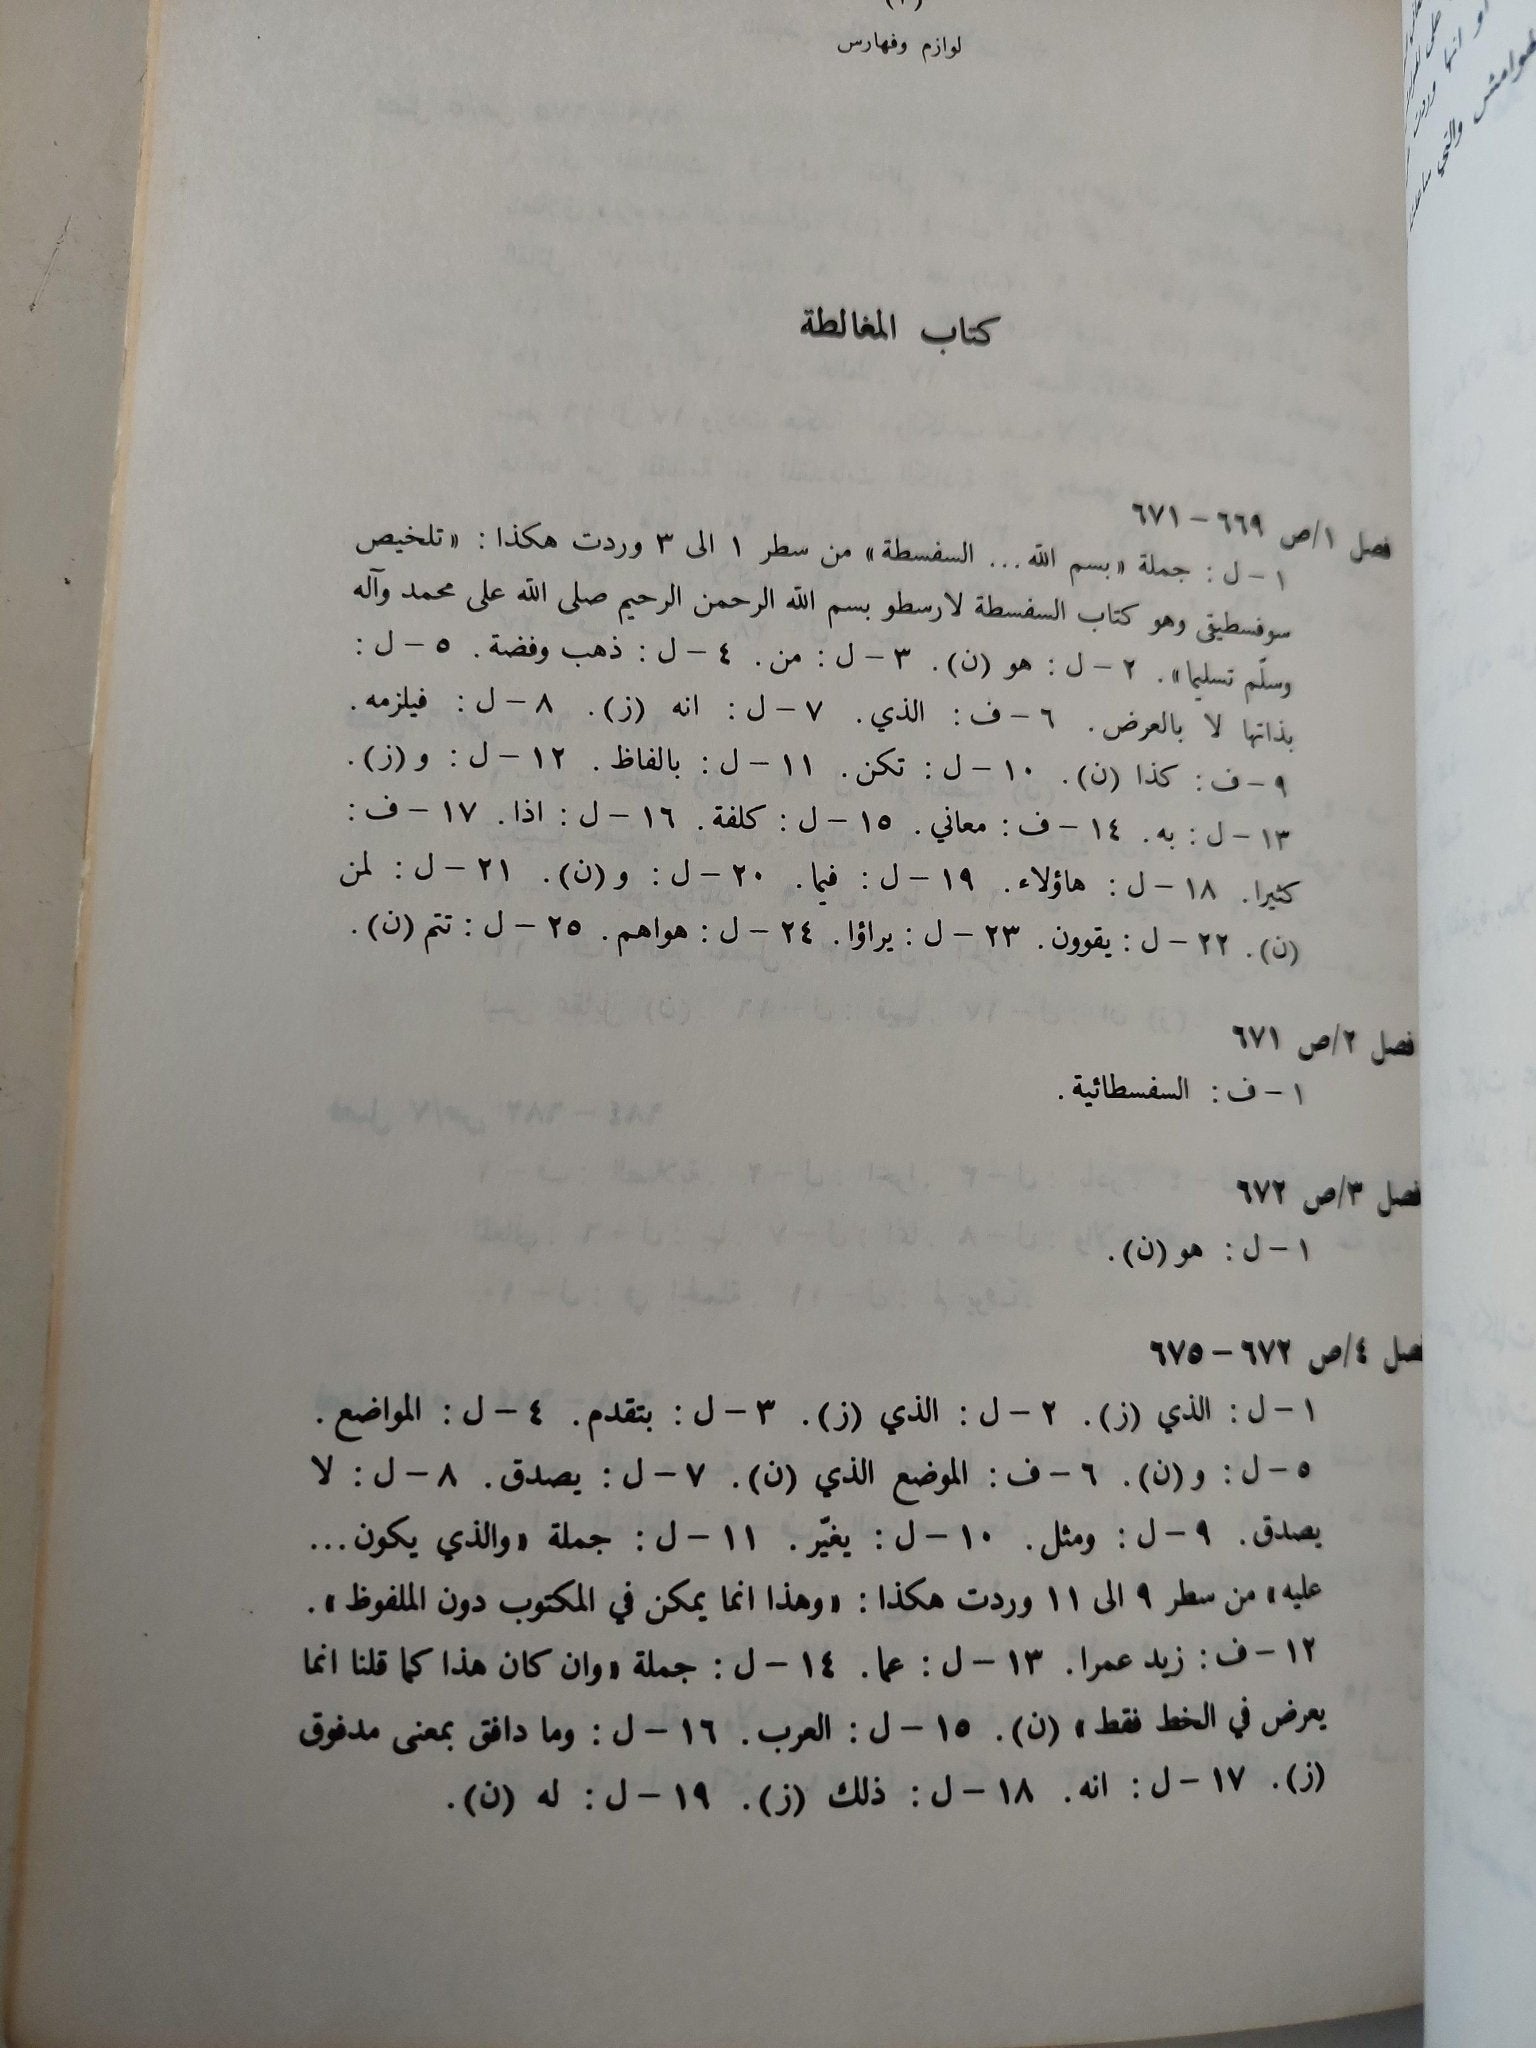 لوازم وفهارس
كتاب المغالطة
فصل ١/ص ٦٦٩ – ٦٧١
١ – ل : جملة «بسم الله... السفسطة» من سطر ١ الى ٣ وردت هكذا : «تلخيص
سوفسطيقي وهو كتاب السفسطة لارسطو بسم الله الرحمن الرحيم صلى الله على محمد وآله
وسلّم تسليما». ٢ – ل : هو (ن). ٣ – ل : من. ٤ – ل : ذهب وفضة. ٥ – ل :
بذاتها لا بالعرض. ٦ – ف : الذي. ٧ – ل : انه (ز). ٨ – ل : فيلزمه.
٩ – ف : كذا (ن). ١٠ – ل : تكن. ١١ – ل : بالفاظ. ١٢ – ل : و (ز).
١٣ – ل : به. ١٤ – ف : معاني. ١٥ – ل : كلفة. ١٦ – ل : اذا. ١٧ – ف :
كثيرا. ١٨ – ل : هاؤلاء. ١٩ – ل : فيما. ٢٠ – ل : و (ن). ٢١ – ل : لمن
(ن). ٢٢ – ل : يقوون. ٢٣ – ل : يراؤا. ٢٤ – ل : هواهم. ٢٥ – ل : تتم (ن).
فصل ٢/ص ٦٧١
١ – ف : السفسطائية.
فصل ٣/ص ٦٧٢
١ – ل : هو (ن).
فصل ٤/ص ٦٧٢ – ٦٧٥
١ – ل : الذي (ز). ٢ – ل : الذي (ز). ٣ – ل : بتقدم. ٤ – ل : المواضع.
٥ – ل : و (ن). ٦ – ف : الموضع الذي (ن). ٧ – ل : يصدق. ٨ – ل : لا
يصدق. ٩ – ل : ومثل. ١٠ – ل : يغيّر. ١١ – ل : جملة «والذي يكون...
عليه» من سطر ٩ الى ١١ وردت هكذا : «وهذا انما يمكن في المكتوب دون الملفوظ».
١٢ – ف : زيد عمرا. ١٣ – ل : عما. ١٤ – ل : جملة «وان كان هذا كما قلنا انما
يعرض في الخط فقط» (ن). ١٥ – ل : العرب. ١٦ – ل : وما دافق بمعنى مدفوق
(ز). ١٧ – ل : انه. ١٨ – ل : ذلك (ز). ١٩ – ل : له (ن).